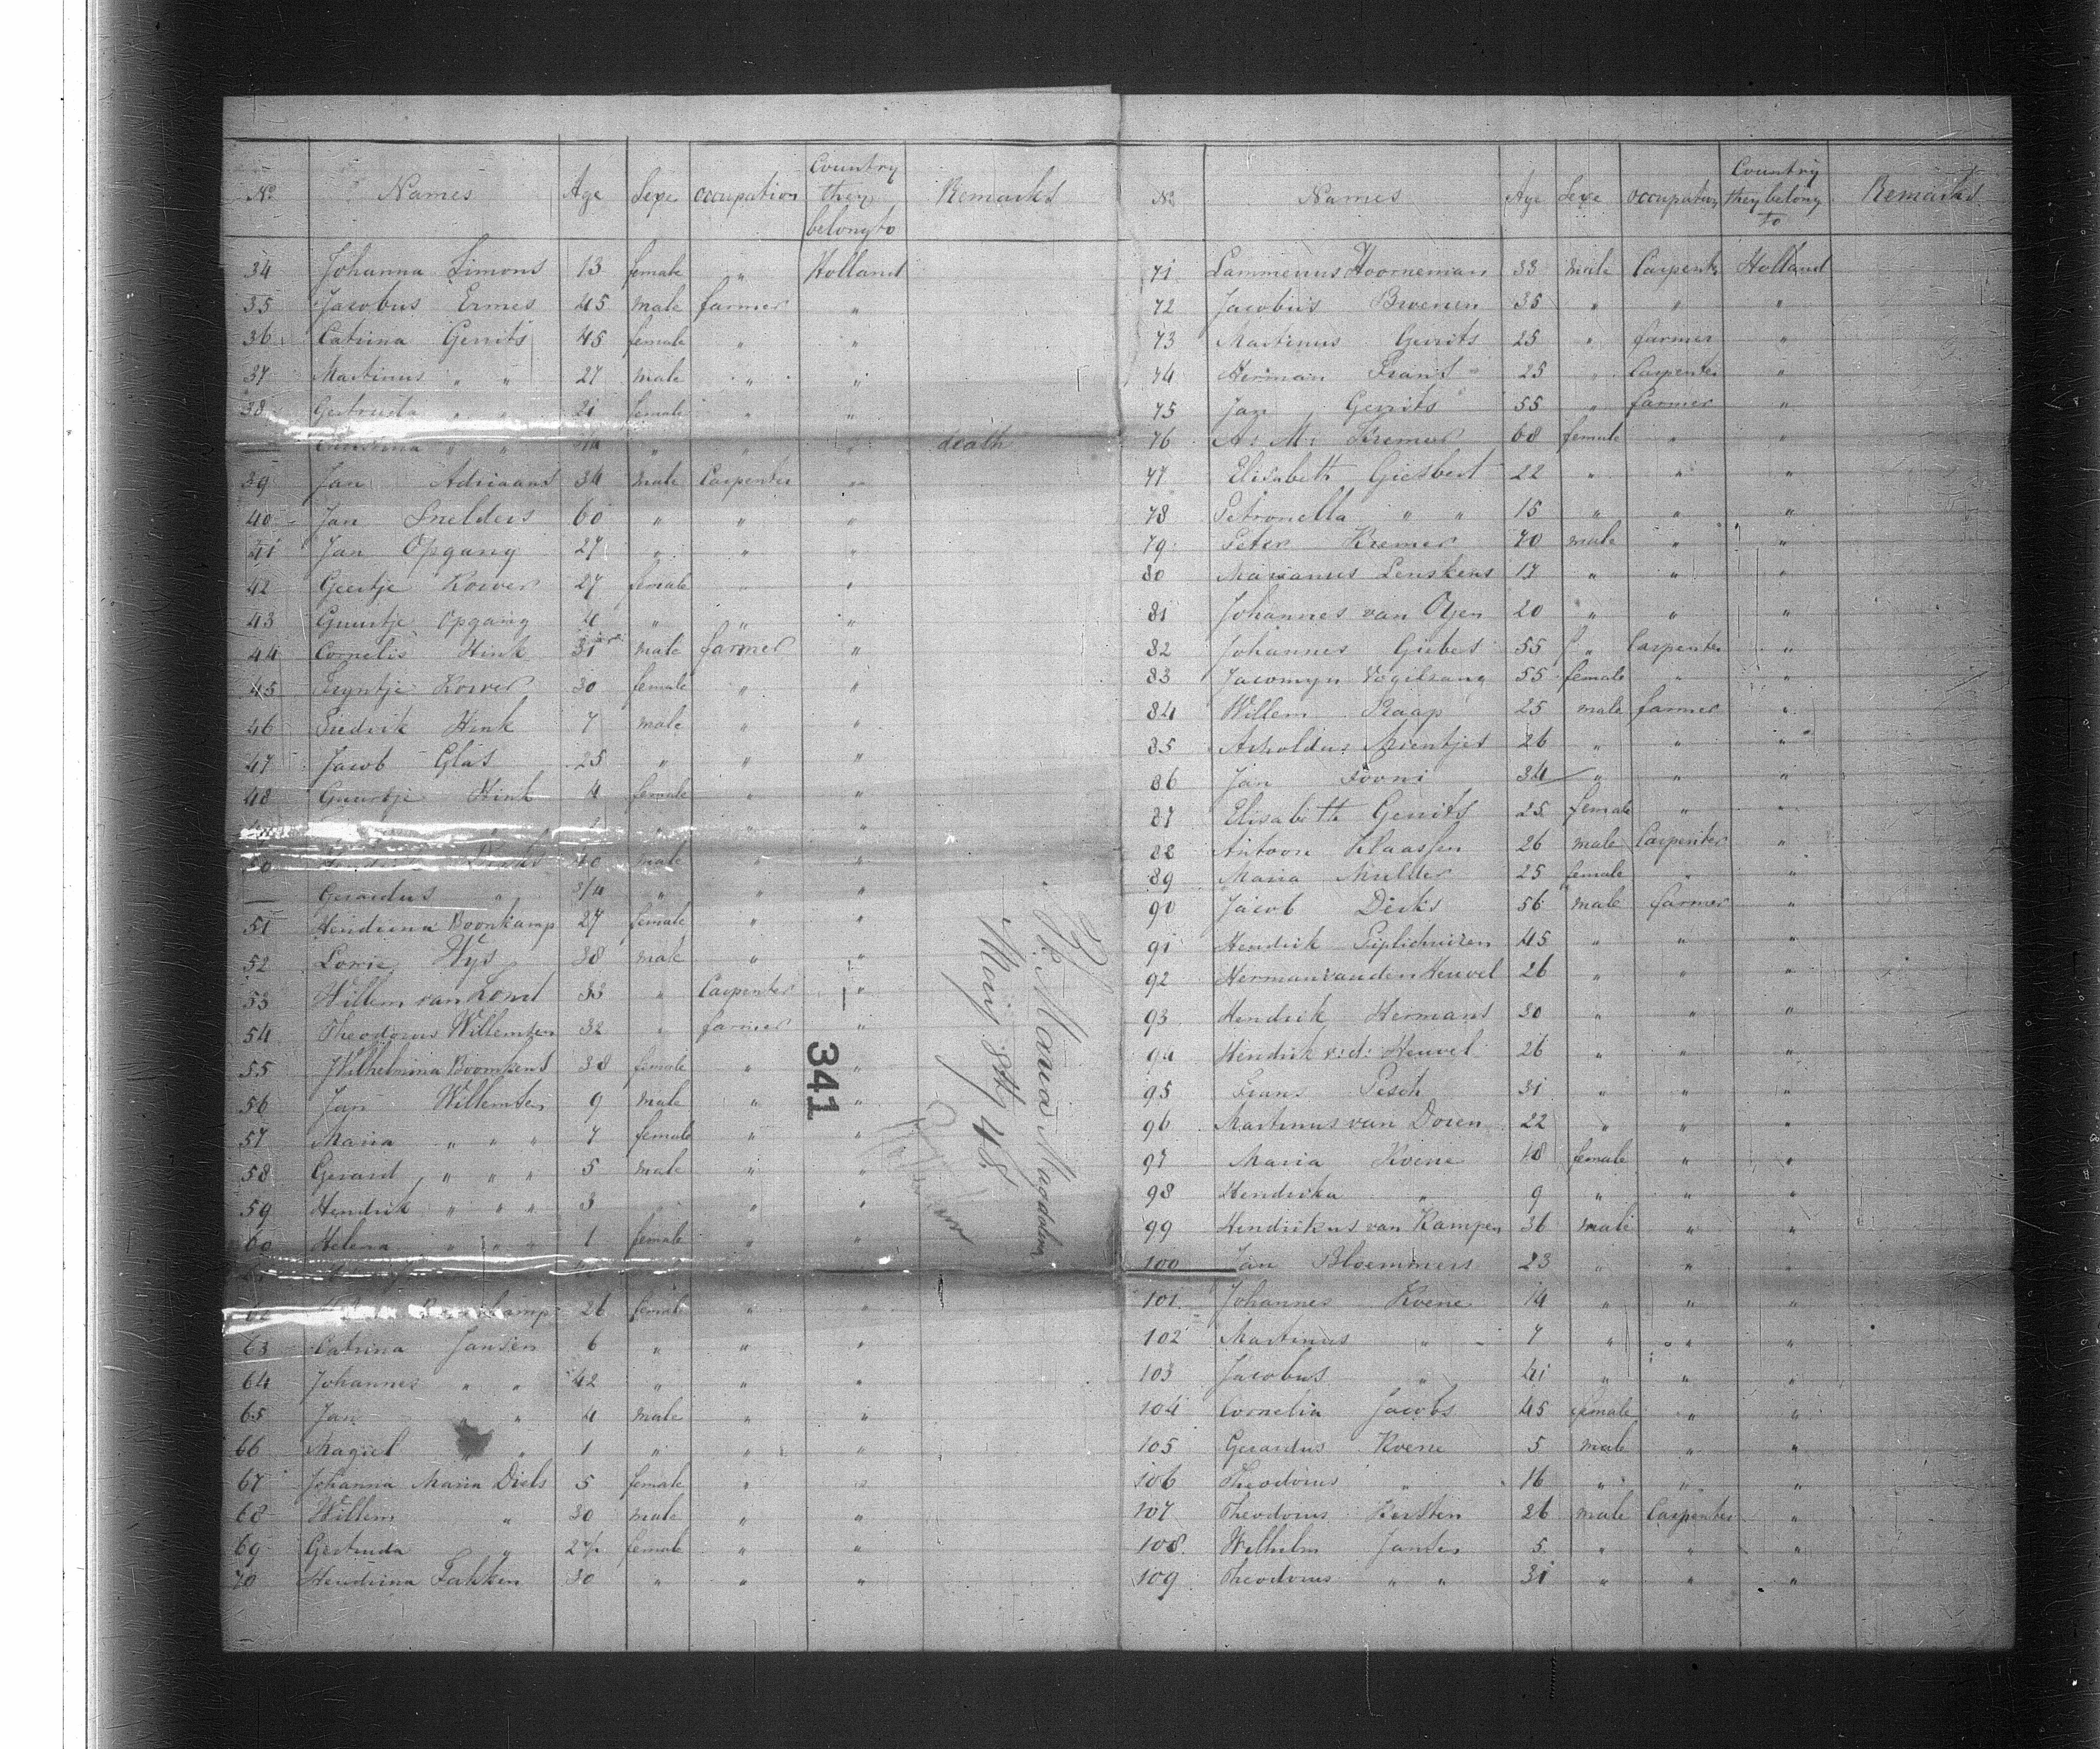 No Names Age Sexe occupation Country they belong to Remarks
34 Johanna Simons 13 female " Holland
35 Jacobus Ermes 45 male farmer "
36 Catrina Gerrits 45 female " "
37 Martinus " " 27 male " "
38 Gertruda " " 21 female " "
" " " " " death
39 Jan Adriaans 34 male Carpenter "
40 Jan Snelders 60 " " "
41 Jan Opgang 27 " " "
42 Geertje Korver 27 female " "
43 Guurtje Opgang 4 " " "
44 Cornelis Hink 31 male farmer "
45 Tryntje Korver 30 female " "
46 Fredrik Hink 7 male " "
47 Jacob Glas 25 " " "
48 Guurtje Hink 4 female " "
" " "
50 40 male "
— Gerardus " 3/4 " " "
51 Hendrina Boonkamp 27 female " "
52 Lowie Wys 38 male " "
53 Willem van Lomt 33 " Carpenter "
54 Theodorus Willemsen 32 " farmer "
55 Wilhelmina Boomkens 38 female " "
56 Jan Willemsen 9 male " "
57 Maria " " " 7 female " "
58 Gerard " " " 5 male " "
59 Hendrik " " " 3 " " "
60 Helena " " " 1 female " "
62 26 female " "
63 Catrina Jansen 6 " " "
64 Johannes " " 42 " " "
65 Jan " 4 male " "
66 Magiel " " 1 " " "
67 Johanna Maria Diels 5 female " "
68 Willem " 30 male " "
69 Gertruda " female " "
70 Hendrina Fakken 30 " " "
341
Maria Magdalena
May 8th 48
No Names Age Sexe occupation Country they belong to Remarks
71 Lammerus Hoorneman 33 male Carpenter Holland
72 Jacobus Broenen 35 " " "
73 Martinus Gerrits 25 " farmer "
74 Herman Frans 25 " Carpenter "
75 Jan Gerrits 55 " farmer "
76 A. M. Kremer 68 female " "
77 Elisabeth Giesbert 22 " " "
78 Petronella " " 15 " " "
79 Peter Kremer 70 male " "
80 Marianus Lenskens 17 " " "
81 Johannes van Oyen 20 " " "
82 Johannes Giebes 55 " Carpenter "
83 Jacomyn Vogelsang 55 female " "
84 Willem Raap 25 male farmer "
85 Arholdus Arientjes 26 " " "
86 Jan 34 " " "
87 Elisabeth Gerrits 25 female " "
88 Antoon Klaassen 26 male Carpenter "
89 Maria Mulder 25 female " "
90 Jacob Dirks 56 male farmer "
91 Hendrik 45 " " "
92 Herman van den Heuvel 26 " " "
93 Hendrik Hermans 30 " " "
94 Hendrik v.d. Heuvel 26 " " "
95 Frans Pesch 31 " " "
96 Martinus van Doren 22 " " "
97 Maria Koene 18 female " "
98 Hendrika " 9 " " "
99 Hendrikus van Kampen 36 male " "
100 Jan Bloemmers 23 " " "
101 Johannes Koene 14 " " "
102 Martinus " 7 " " "
103 Jacobus " 41 " " "
104 Cornelia Jacobs 45 female " "
105 Gerardus Koene 5 male " "
106 Theodorus " 16 " " "
107 Theodorus Kersten 26 male Carpenter "
108 Wilhelm Jansen 5 " " "
109 Theodorus " " 31 " " "